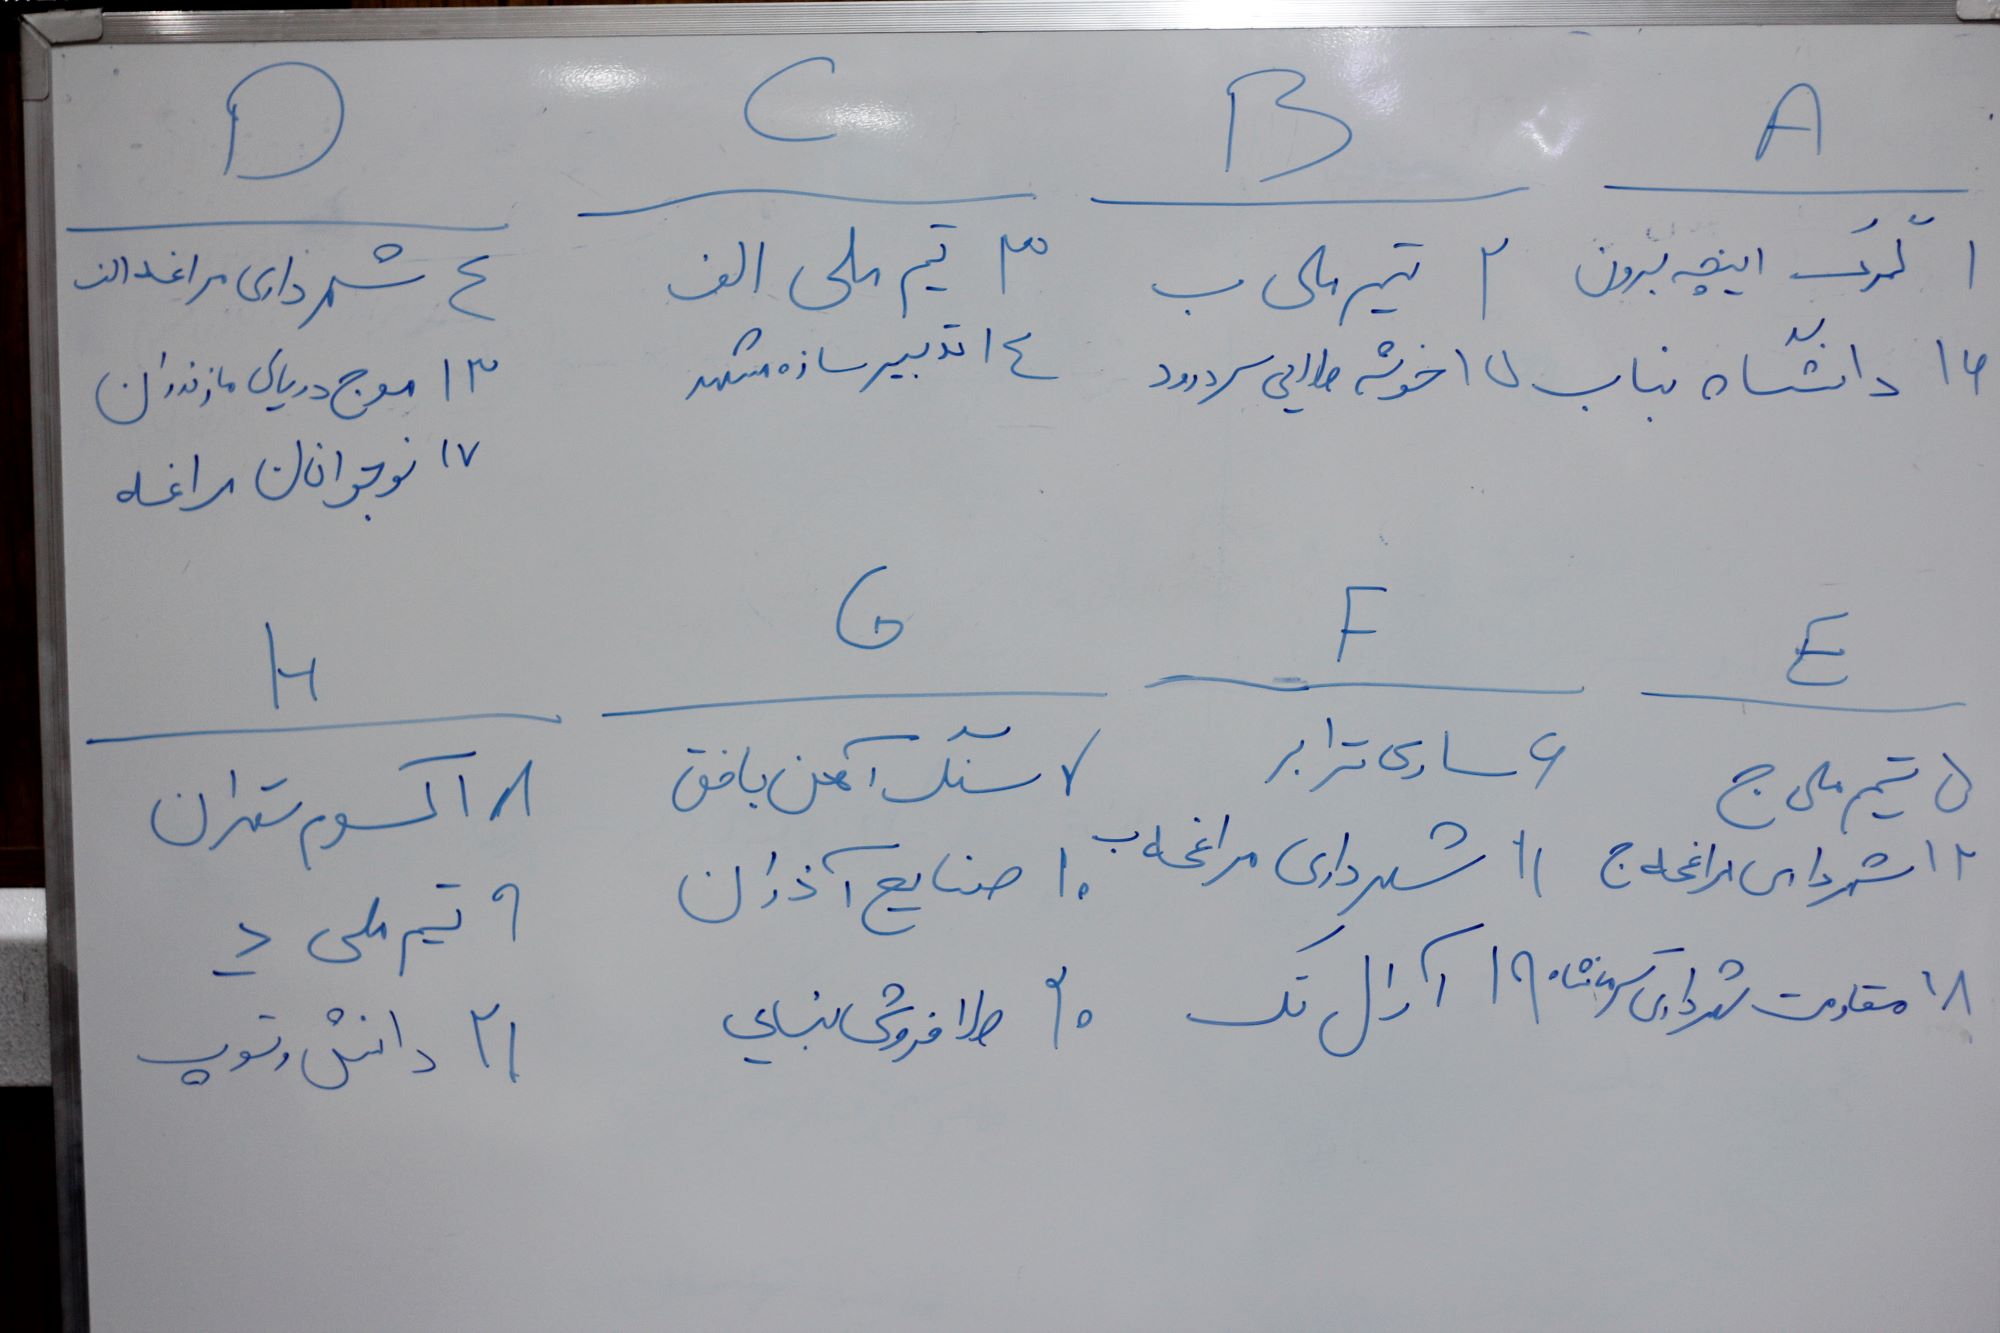 A
۱ گمرک اینچه برون
۱۶ دانشگاه بناب
B
۲ تیم ملی ب
۱۵ خوشه طلایی سردرود
C
۳ تیم ملی الف
۱۴ تدبیر سازه مشهد
D
۴ شهرداری مراغه الف
۱۳ موج دریای مازندران
۱۷ نوجوانان مراغه
E
۵ تیم ملی ج
۱۲ شهرداری مراغه ج
۱۸ مقاومت شهرداری کرمانشاه
F
۶ ساری ترابر
۱۱ شهرداری مراغه ب
۱۹ آرال تک
G
۷ سنگ آهن بافق
۱۰ صنایع آذران
۲۰ طلافروشی
H
۸ اکسوم تهران
۹ تیم ملی د
۲۱ دانش و توپ